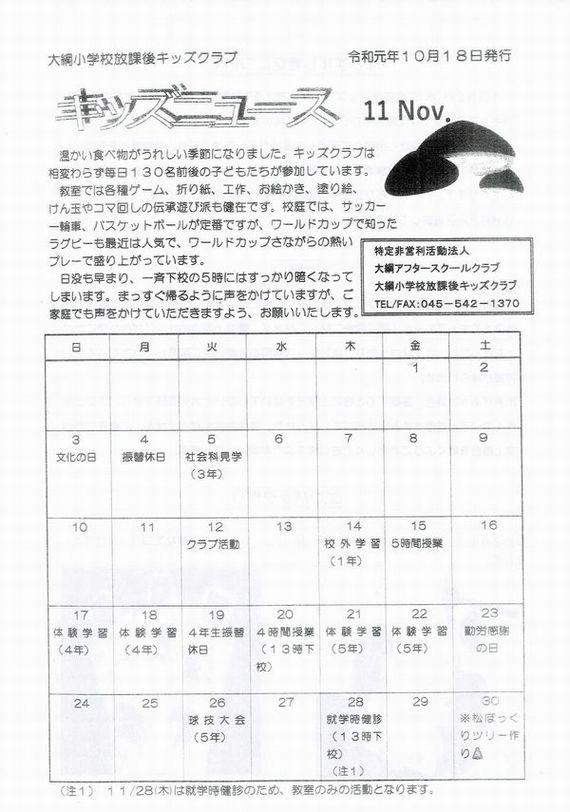 大綱小学校放課後キッズクラブ 令和元年10月18日発行
キッズニュース 11 Nov.
温かい食べ物がうれしい季節になりました。キッズクラブは
相変わらず毎日130名前後の子どもたちが参加しています。
教室では各種ゲーム、折り紙、工作、お絵かき、塗り絵、
けん玉やコマ回しの伝承遊び派も健在です。校庭では、サッカー
一輪車、バスケットボールが定番ですが、ワールドカップで知った
ラグビーも最近は人気で、ワールドカップさながらの熱い
プレーで盛り上がっています。
日没も早まり、一斉下校の5時にはすっかり暗くなって
しまいます。まっすぐ帰るように声をかけていますが、ご
家庭でも声をかけていただきますよう、お願いいたします。
特定非営利活動法人
大綱アフタースクールクラブ
大綱小学校放課後キッズクラブ
TEL/FAX:045-542-1370
日 月 火 水 木 金 土
1 2
3 4 5 6 7 8 9
文化の日 振替休日 社会科見学
(3年)
10 11 12 13 14 15 16
クラブ活動 校外学習 5時間授業
(1年)
17 18 19 20 21 22 23
体験学習 体験学習 4年生振替 4時間授業 体験学習 体験学習 勤労感謝
(4年) (4年) 休日 (13時下 (5年) (5年) の日
校)
24 25 26 27 28 29 30
球技大会 就学時健診 ※松ぼっく
(5年) (13時下 りツリー作
校) り
(注1)
(注1) 11/28(木)は就学時健診のため、教室のみの活動となります。